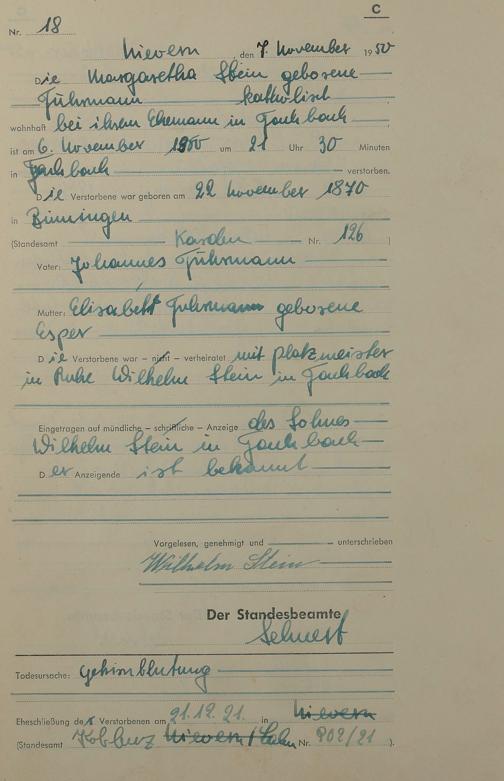 C
Nr. 18
Nievern, den 7. November 1950
Die Margaretha Stein geborene
Fuhrmann katholisch
wohnhaft bei ihrem Ehemann in Fachbach
ist am 6. November 1950 um 21 Uhr 30 Minuten
in Fachbach verstorben.
Die Verstorbene war geboren am 22 November 1870
in Binningen
(Standesamt Karden Nr. 126)
Vater: Johannes Fuhrmann
Mutter: Elisabeth Fuhrmann geborene
Esper
Die Verstorbene war – nicht – verheiratet mit Platzmeister
in Ruhe Wilhelm Stein in Fachbach
Eingetragen auf mündliche – schriftliche – Anzeige des Sohnes
Wilhelm Stein in Fachbach
Der Anzeigende ist bekannt
Vorgelesen, genehmigt und unterschrieben
Wilhelm Stein
Der Standesbeamte
Todesursache: Gehirnblutung
Eheschließung der Verstorbenen am 21.12.21. in Nievern
(Standesamt Koblenz Nievern/Lahn Nr. 902/21).